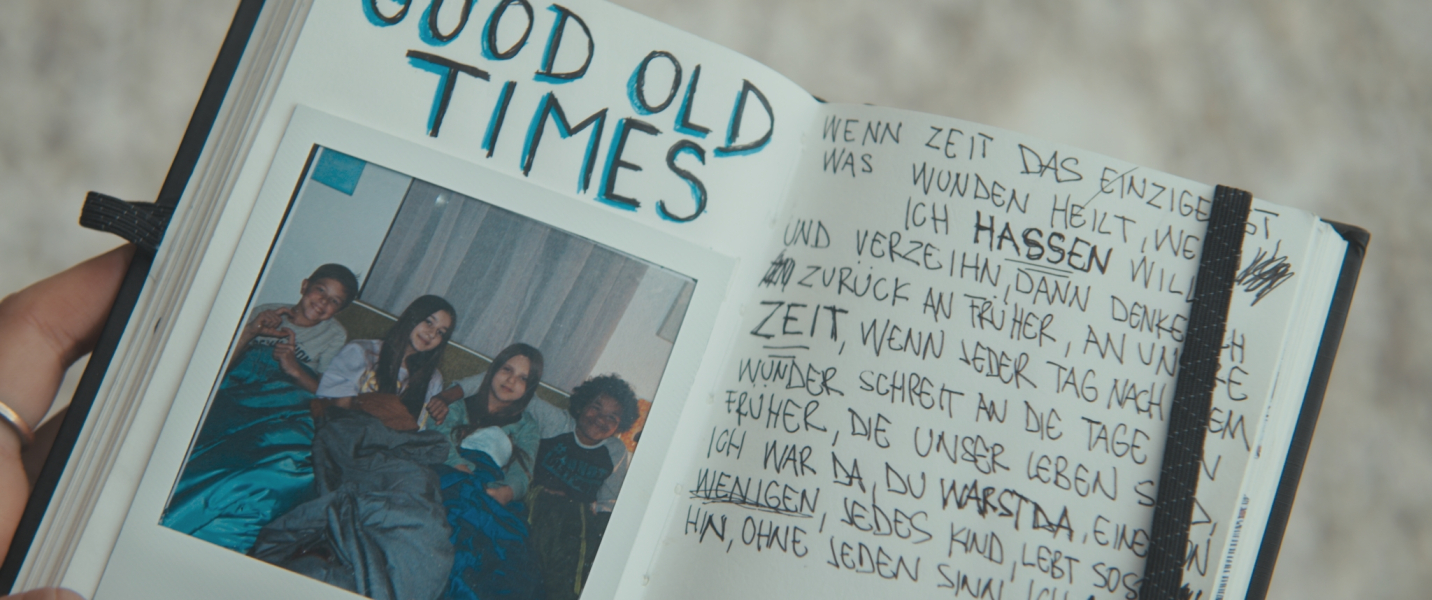 GOOD OLD
TIMES
WENN ZEIT DAS EINZIGE
WAS WUNDEN HEILT,
ICH HASSEN WILL
UND VERZEIHN, DANN DENKE
ZURÜCK AN FRÜHER, AN
ZEIT, WENN JEDER TAG NACH
WUNDER SCHREIT AN DIE TAGE
FRÜHER, DIE UNSER LEBEN
ICH WAR DA, DU WARST DA, EINE
WENIGEN, JEDES KIND, LEBT
HIN, OHNE JEDEN SINN, ICH